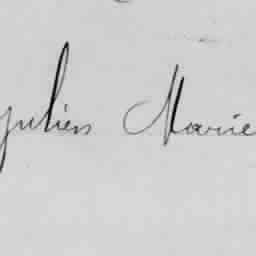 Julien Marie